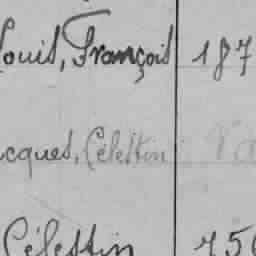 Louis, François 187
cques, Célestin
Célestin 756